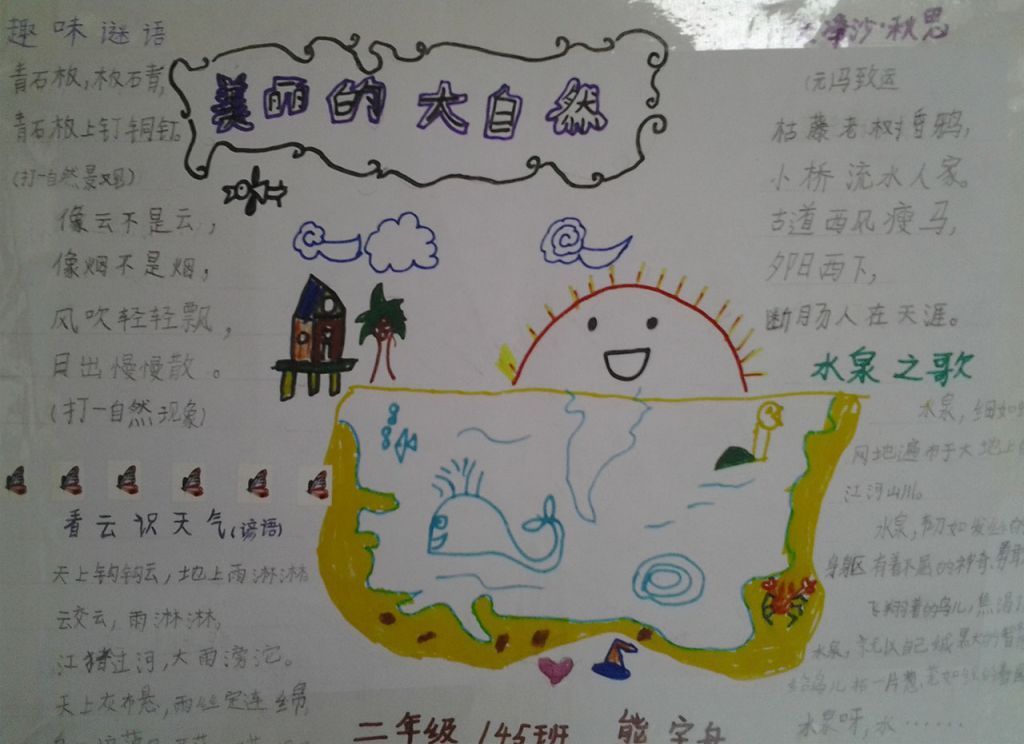 趣味谜语
青石板,板石青,
青石板上钉铜钉。
(打一自然景观)
像云不是云,
像烟不是烟,
风吹轻轻飘,
日出慢慢散。
(打一自然现象)
看云识天气(谚语)
天上钩钩云,地上雨淋淋
云交云,雨淋淋,
江猪过河,大雨滂沱。
天上灰布悬,雨丝定连绵,
美丽的大自然
二年级 145班 能宇舟
沙·秋思
(元)马致远
枯藤老树昏鸦,
小桥流水人家。
古道西风瘦马,
夕阳西下,
断肠人在天涯。
水泉之歌
水泉,细如
网地遍布于大地上
江河山川。
水泉,韧如发丝
身躯有着不屈的神奇,
飞翔着的鸟儿,焦渴
水泉,
水泉呀,水……